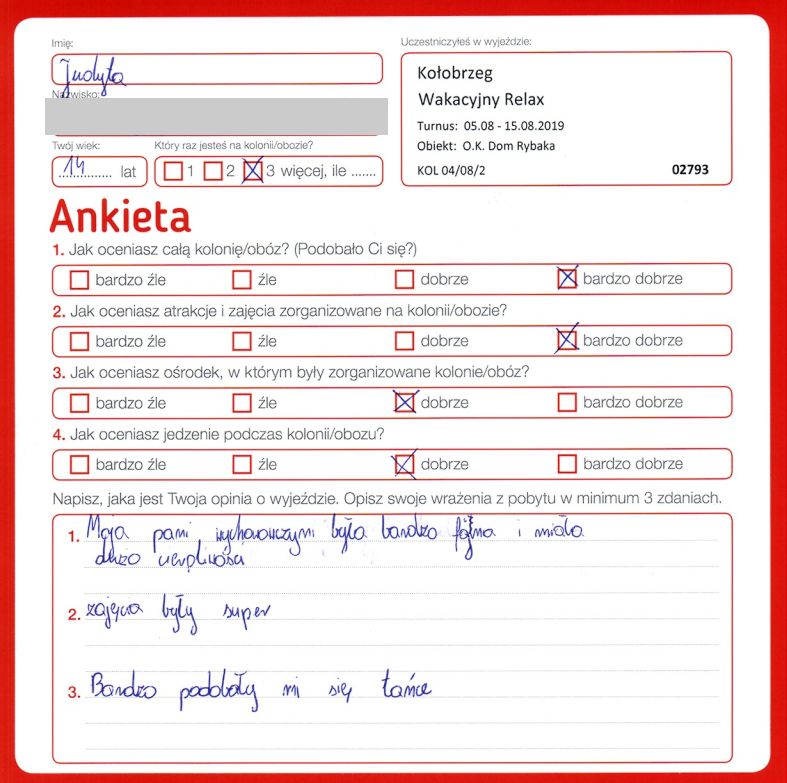 Imię:
Judyta
Nazwisko:
Twój wiek:
14 lat
Który raz jesteś na kolonii/obozie?
1 2 3 więcej, ile .......
Uczestniczyłeś w wyjeździe:
Kołobrzeg
Wakacyjny Relax
Turnus: 05.08 - 15.08.2019
Obiekt: O.K. Dom Rybaka
KOL 04/08/2 02793
Ankieta
1. Jak oceniasz całą kolonię/obóz? (Podobało Ci się?)
bardzo źle źle dobrze bardzo dobrze
2. Jak oceniasz atrakcje i zajęcia zorganizowane na kolonii/obozie?
bardzo źle źle dobrze bardzo dobrze
3. Jak oceniasz ośrodek, w którym były zorganizowane kolonie/obóz?
bardzo źle źle dobrze bardzo dobrze
4. Jak oceniasz jedzenie podczas kolonii/obozu?
bardzo źle źle dobrze bardzo dobrze
Napisz, jaka jest Twoja opinia o wyjeździe. Opisz swoje wrażenia z pobytu w minimum 3 zdaniach.
1. Moja pani wychowawczyni była bardzo fajna i miała
dużo cierpliwości
2. zajęcia były super
3. Bardzo podobały mi się tańce